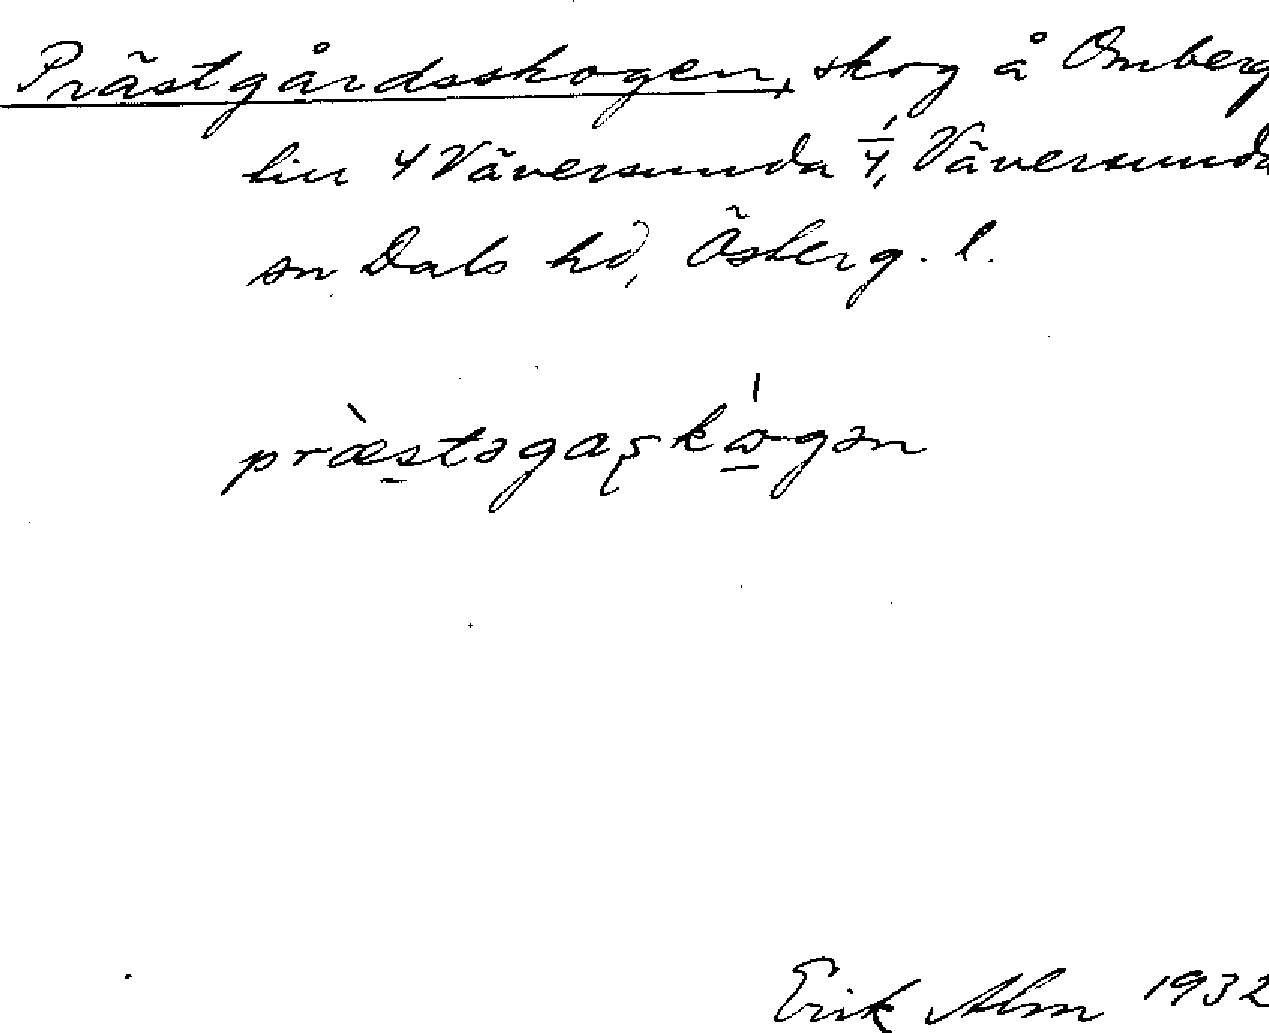 Prästgårdsskogen, skog å Omberg
till 4 Väversunda 1/4, Väversunda
sn Dals hd, Österg. l.
præ̀stəgaʂkɷ́gən
Erik Alm 1932